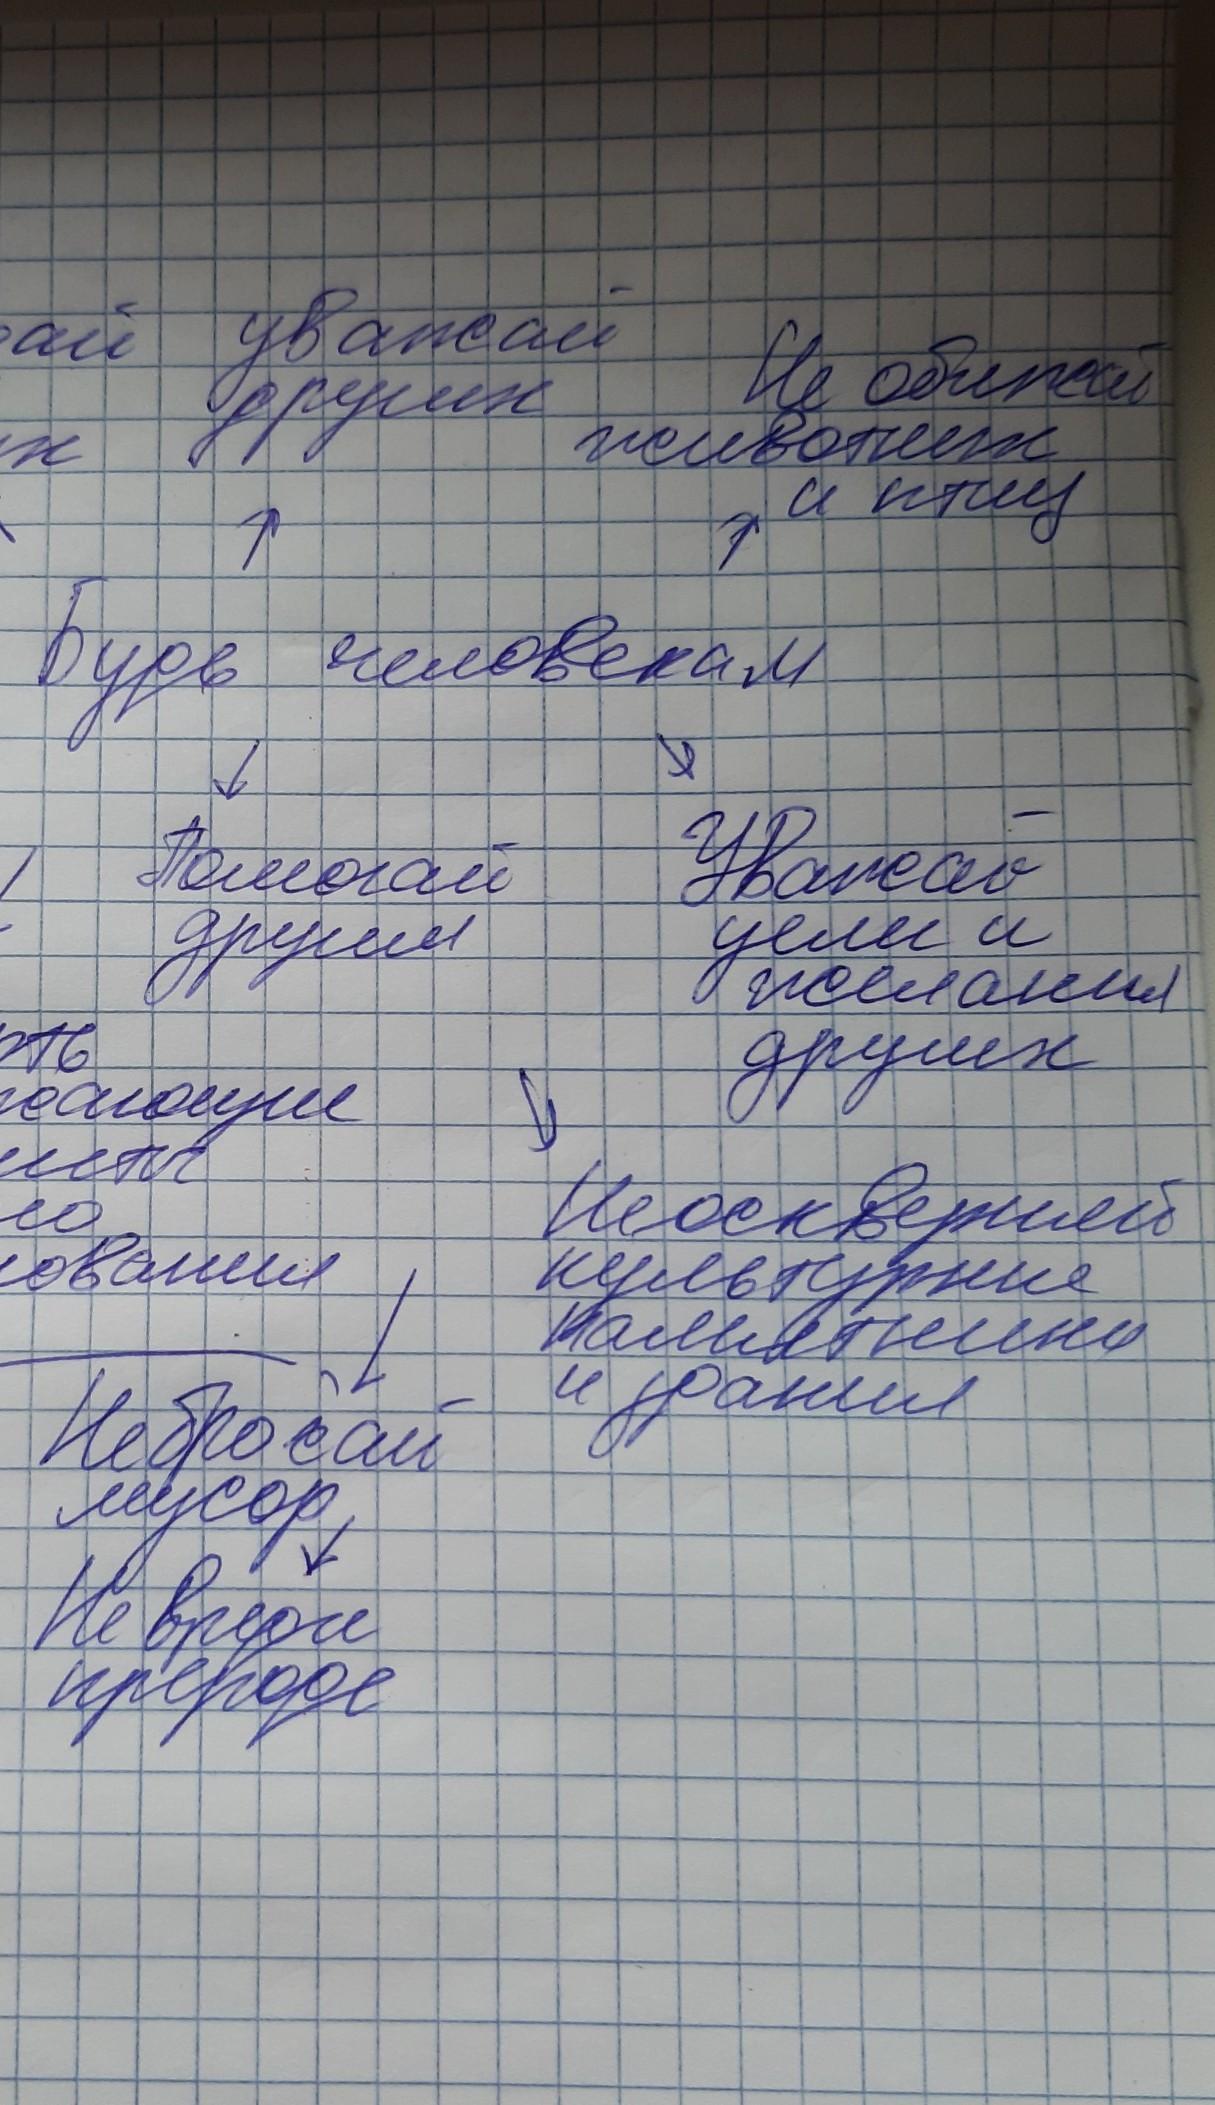 уважай
других
Не обижай
животных
и птиц
Будь человекам
Помогай
другим
Уважай
цели и
желания
других
Не оскверняй
культурние
памятники
и здания
Не бросай
мусор
Не вреди
природе